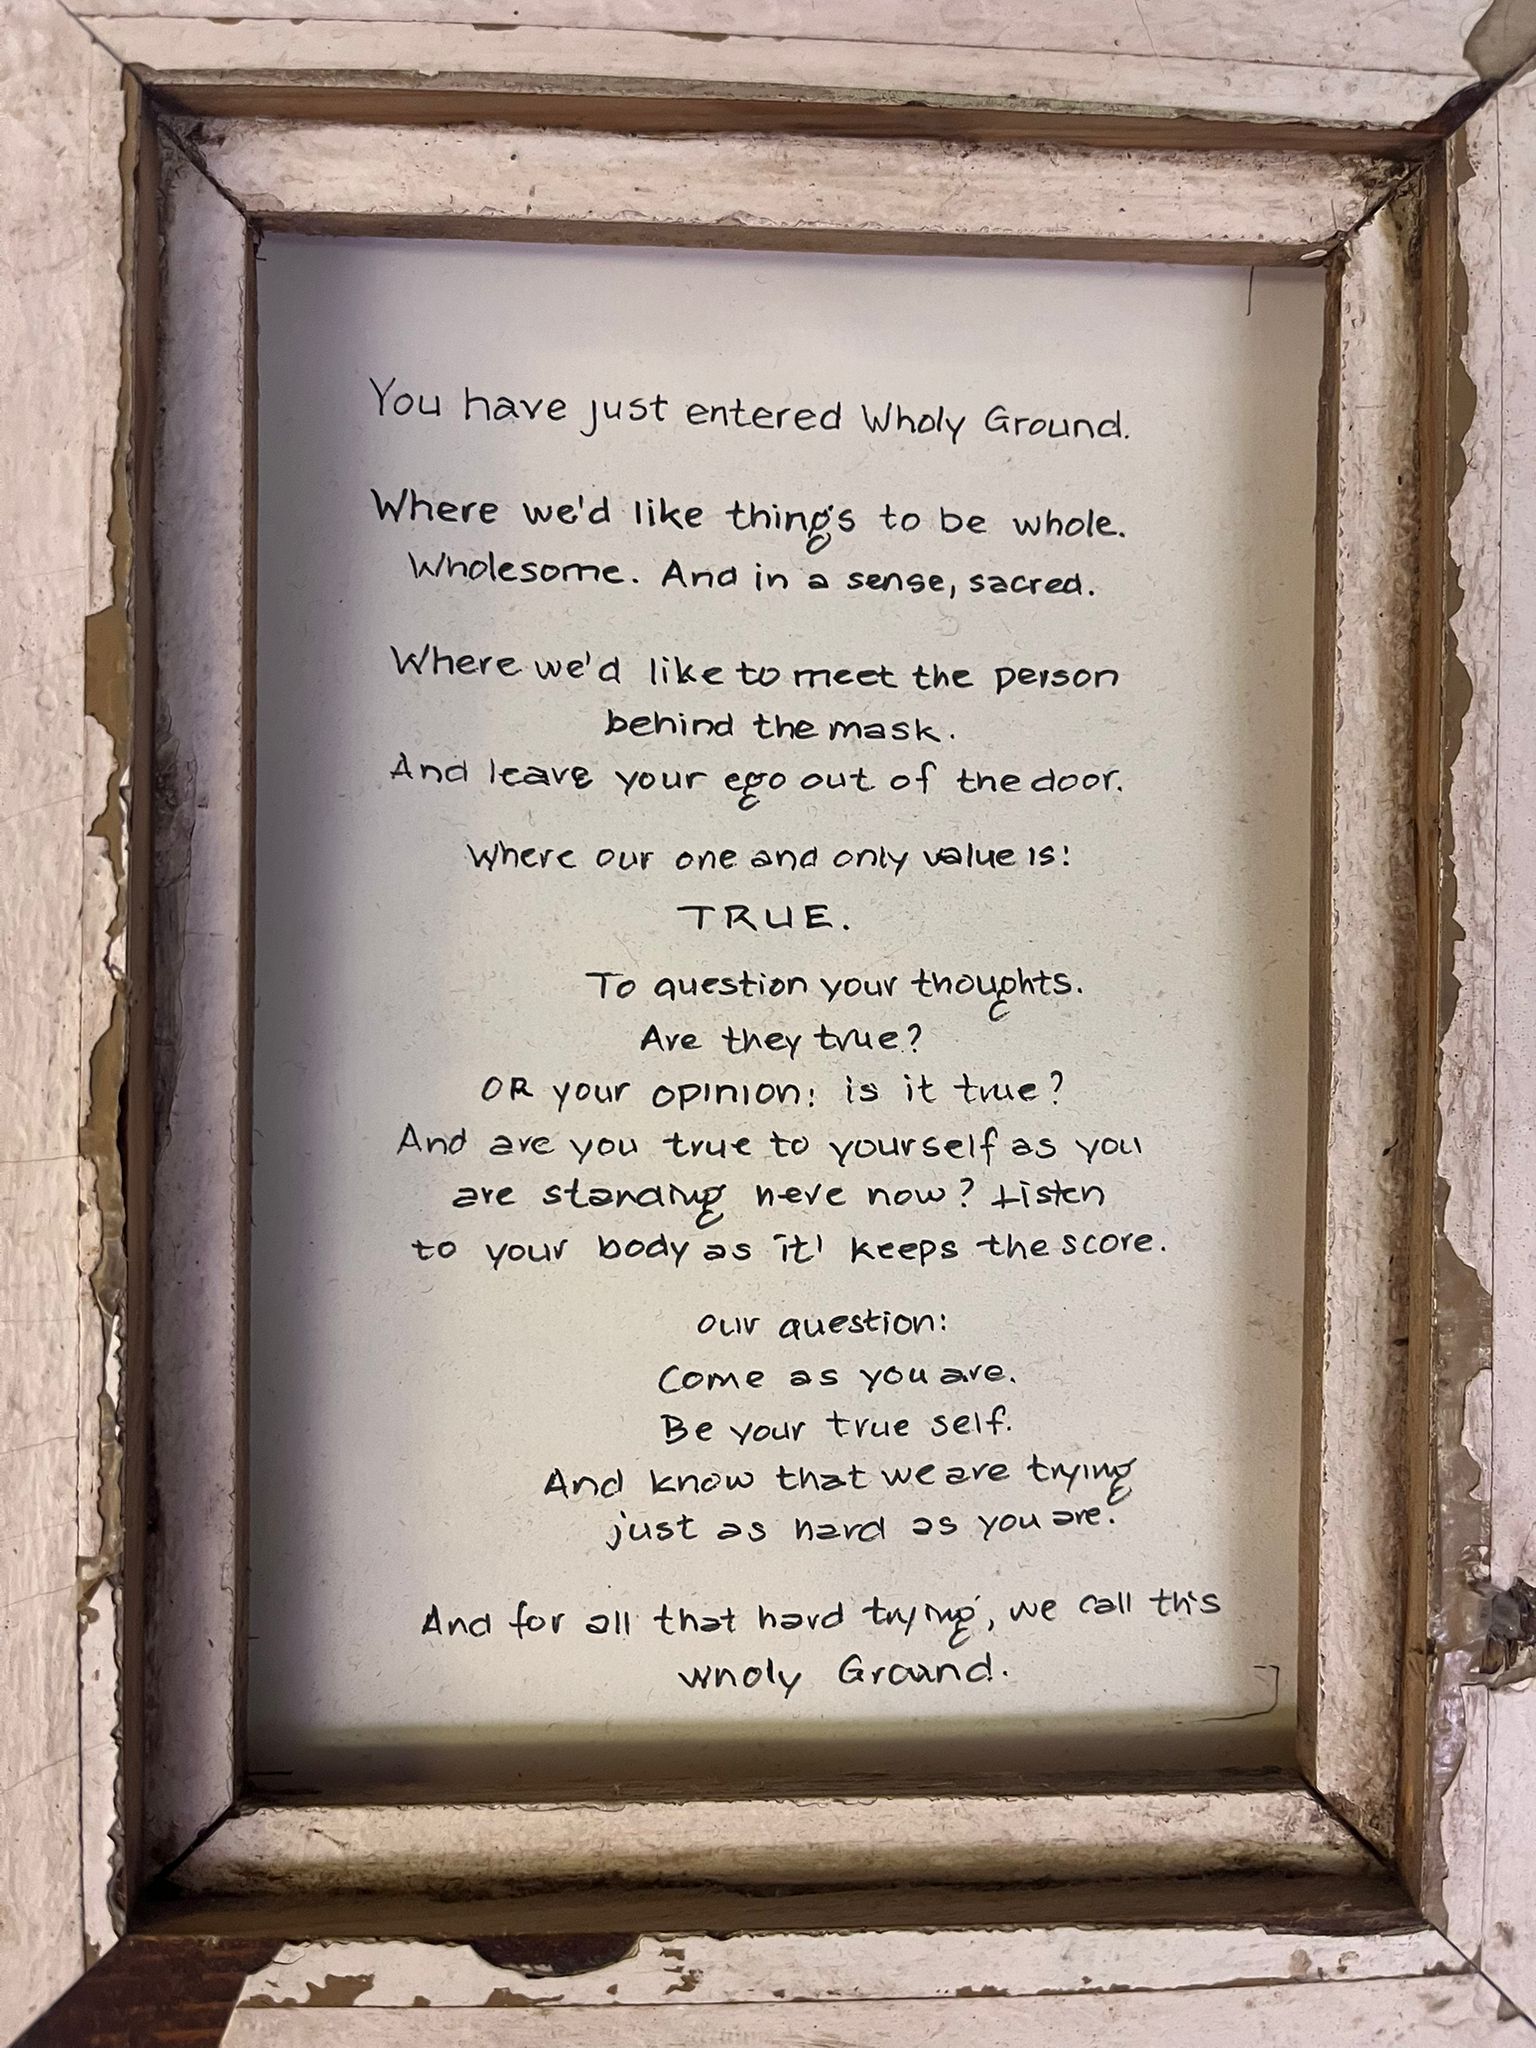 You have just entered Wholy Ground.
Where we'd like things to be whole.
Wholesome. And in a sense, sacred.
Where we'd like to meet the person
behind the mask.
And leave your ego out of the door.
Where our one and only value is:
TRUE.
To question your thoughts.
Are they true?
OR your opinion: is it true?
And are you true to yourself as you
are standing here now? Listen
to your body as 'it' keeps the score.
our question:
Come as you are.
Be your true self.
And know that we are trying
just as hard as you are.
And for all that hard trying, we call this
wholy Ground.